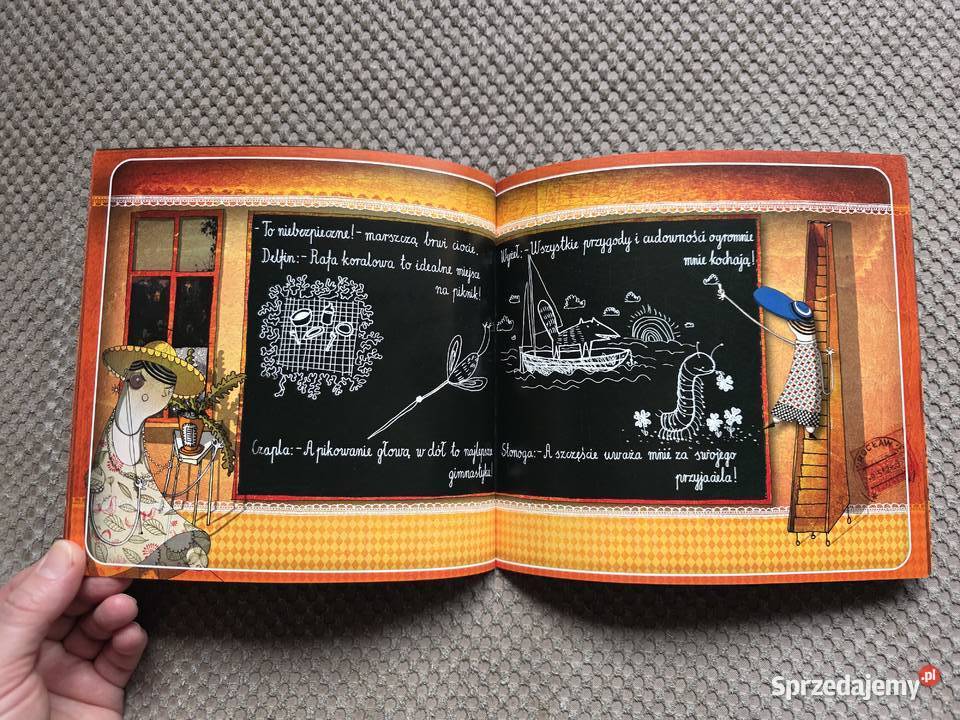 - To niebezpieczne! - marszczą brwi ciocie.
Delfin: - Rafa koralowa to idealne miejsce
na piknik!
Czapla: - A pikowanie głową w dół to najlepsza
gimnastyka!
Wyżeł: - Wszystkie przygody i cudowności ogromnie
mnie kochają!
Stonoga: - A szczęście uważa mnie za swojego
przyjaciela!
WROCŁAW
Sprzedajemy.pl